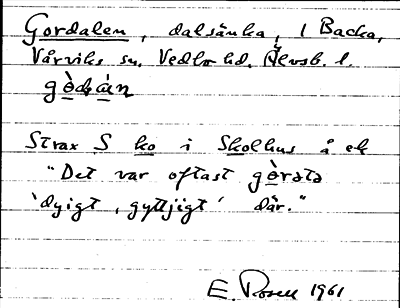 Gordalen, dalsänka, 1 Backa,
Vårviks sn. Vedbo hd. Älvsb. l.
Strax S ko i Skolhus å ek
"Det var oftast gørətə
'dyigt, gyttjigt' där."
E. Rosell 1961